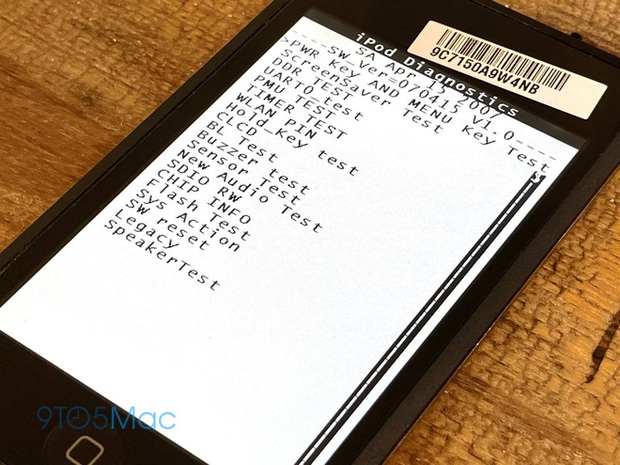 9C7150A9W4NB
iPod Diagnostics
SA Apr 15 2007
----SW_Ver=070415 v1.0----
>PWR Key AND MENU Key Test
ScreenSaver Test
DDR TEST
UART0 test
PMU TEST
TIMER TEST
WLAN PIN
Hold_Key test
CLCD
BL Test
Buzzer test
Sensor Test
New Audio Test
SDIO RW
CHIP INFO
Flash Test
Sys Action
SW reset
Legacy
SpeakerTest
9TO5Mac